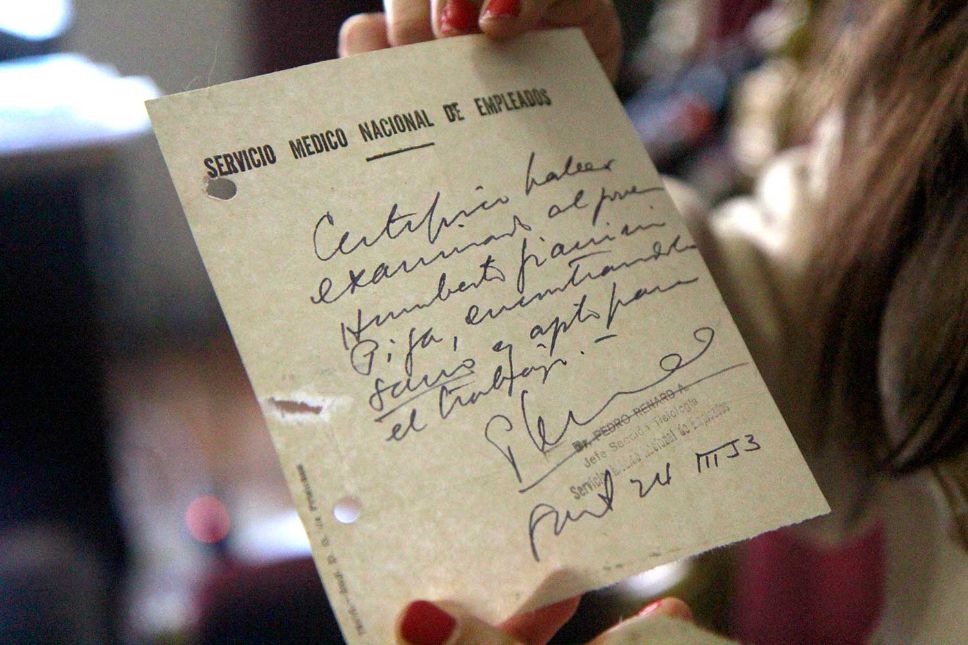 SERVICIO MEDICO NACIONAL DE EMPLEADOS
Certifico haber
examinado al joven
Humberto Giannini
Piga, encontrandolo
sano y apto para
el trabajo.-
Dr. PEDRO RENARD A.
Jefe Sección Tisiología
Servicio Médico Nacional de Empleados
24 III 53